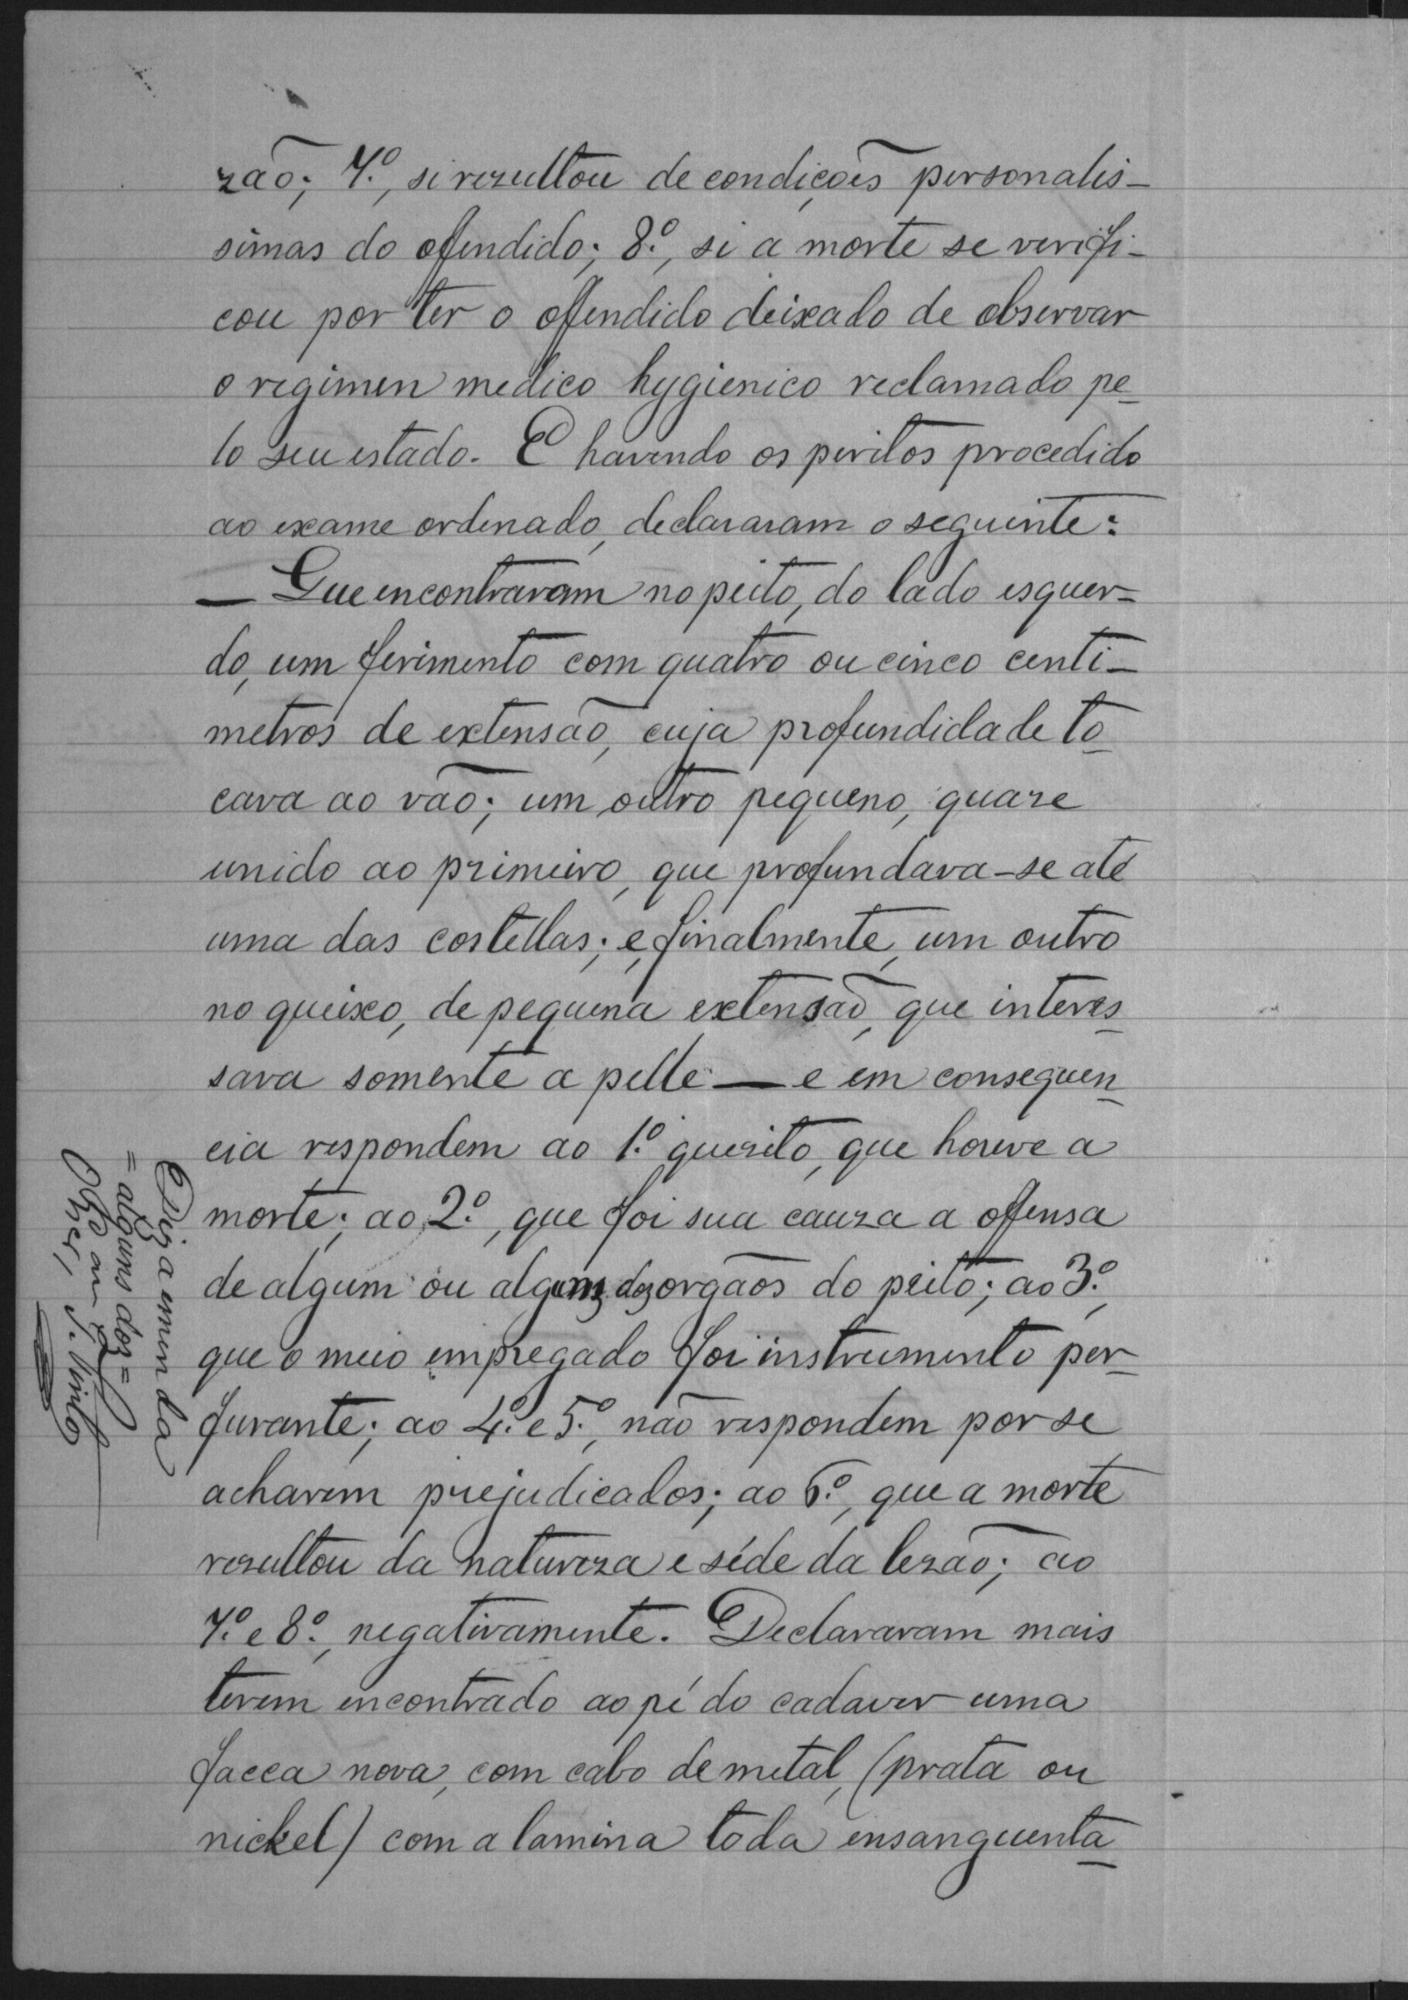 zão; 7.º, si rezultou de condições personalis-
simas do offendido; 8.º, si a morte se verifi-
cou por ter o offendido deixado de observar
o regimen medico hygienico reclamado pe-
lo seu estado. E havendo os peritos procedido
ao exame ordenado, declararam o seguinte:
— Que encontraram no peito, do lado esquer-
do, um ferimento com quatro ou cinco centi-
metros de extensão, cuja profundidade to-
cava ao vão; um outro pequeno, quaze
unido ao primeiro, que profundava-se até
uma das costellas; e, finalmente, um outro
no queixo, de pequena extensão, que interes-
sava somente a pelle — e em consequen-
cia respondem ao 1.º quezito, que houve a
morte; ao 2.º, que foi sua cauza a offensa
de algum ou alguns dos orgãos do peito; ao 3.º,
que o meio empregado foi instrumento per-
furante; ao 4.º e 5.º, não respondem por se
acharem prejudicados; ao 6.º, que a morte
rezultou da natureza e séde da lezão; ao
7.º e 8.º, negativamente. Declararam mais
terem encontrado ao pé do cadaver uma
facca nova, com cabo de metal, (prata ou
nickel) com a lamina toda ensanguenta-
Diz a emenda
= alguns dos =